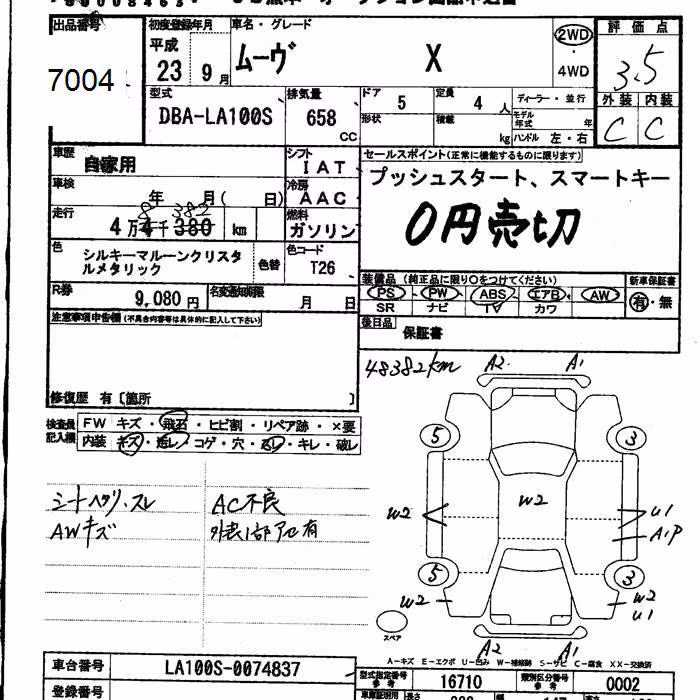 出品番号
7004
初度登録年月
平成
23 9月
車名・グレード
ムーヴ X
2WD
4WD
評価点
3.5
外装 内装
C C
型式
DBA-LA100S
排気量
658
CC
ドア 5
定員 4 人
形状
積載 kg
ディーラー・並行
モデル年式 年
ハンドル 左・右
車歴
自家用
シフト
IAT
車検
年 月( 日)
冷房
AAC
走行
8 382
4万4千380 km
燃料
ガソリン
色
シルキーマルーンクリスタ
ルメタリック
色替
色コード
T26
R券
9,080円
名変通知期限
月 日
セールスポイント(正常に機能するものに限ります)
プッシュスタート、スマートキー
0円売切
装備品 (純正品に限り○をつけてください)
新車保証書
PS PW ABS エアB AW
SR ナビ TV カワ
有・無
後日品
保証書
注意事項申告欄(不具合内容等は具体的に記入して下さい)
修復歴 有〔箇所 〕
検査員
記入欄
FW キズ・飛石・ヒビ割・リペア跡・×要
内装 キズ・汚レ・コゲ・穴・スレ・キレ・破レ
シートヘタリ、スレ
AWキズ
AC不良
外装1部アセ有
48382km
A2 A1
5 3
W2
W2
U1
A1P
5 3
W2
W2
U1
スペア
A2 A1
A-キズ E-エクボ U-凹み W-補修跡 S-サビ C-腐食 XX-交換済
車台番号
LA100S-0074837
型式指定番号
参考
16710
類別区分番号
参考
0002
登録番号